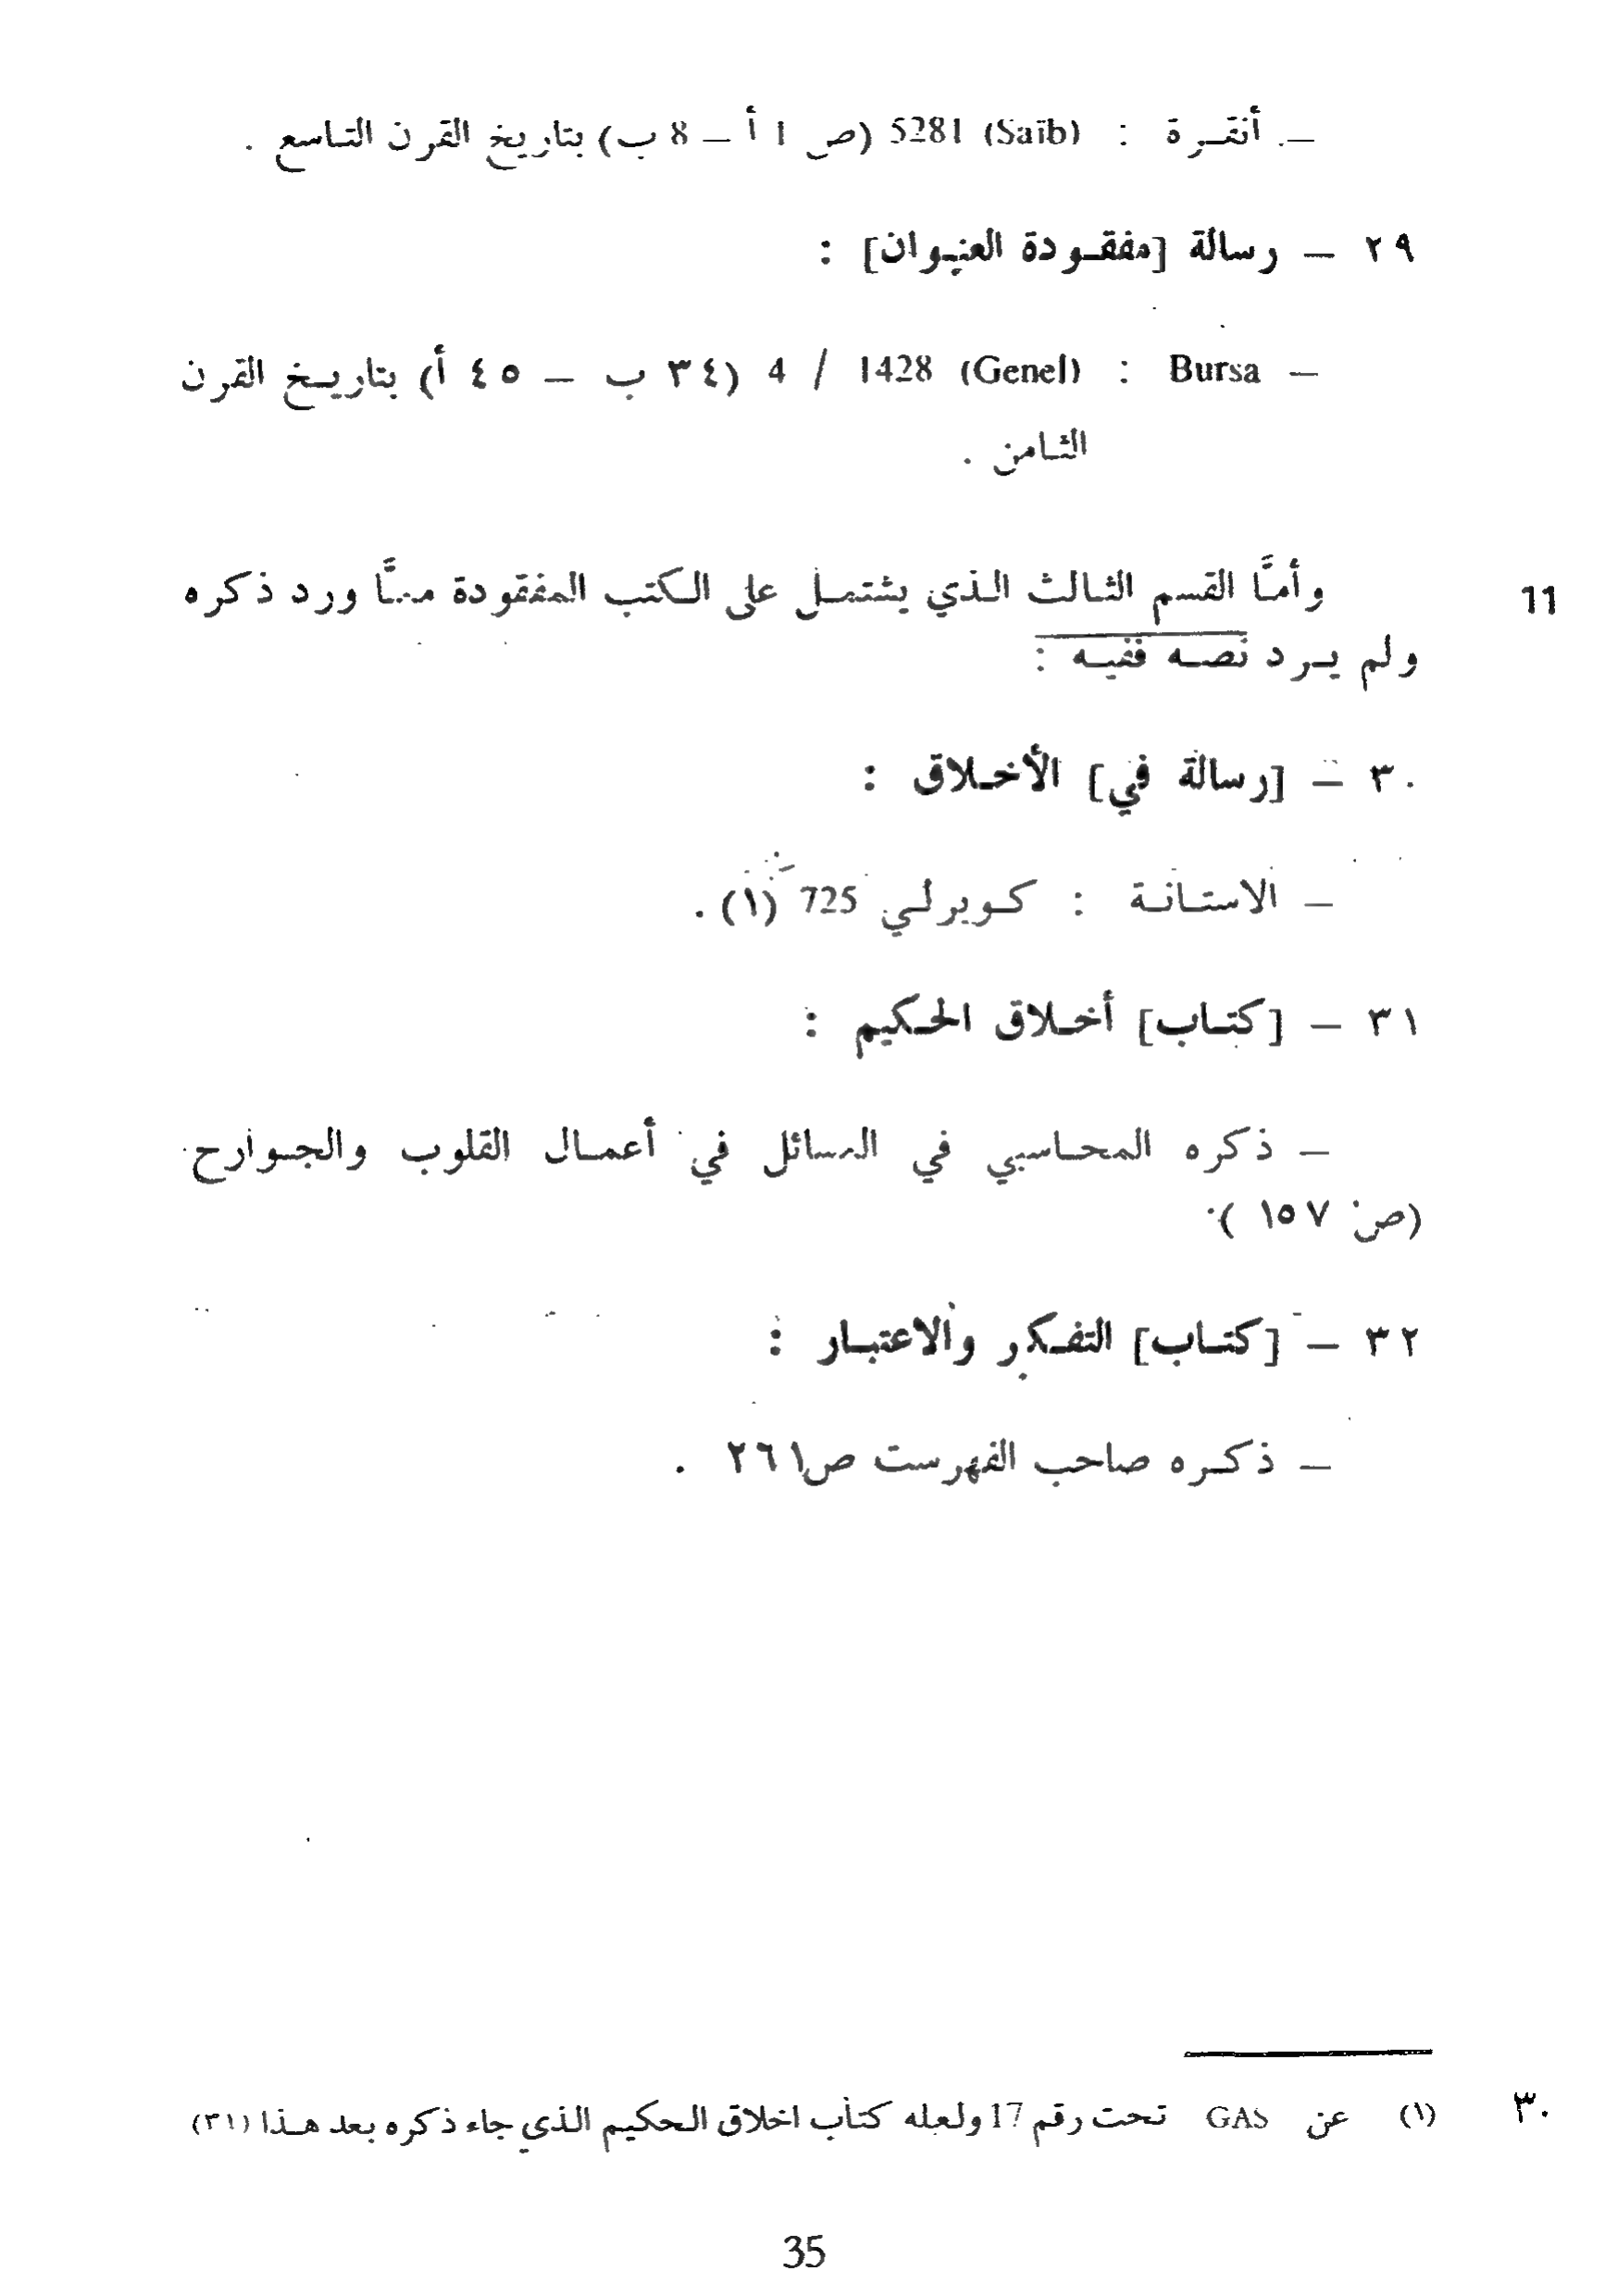 — أنقـرة : (Saïb) 5281 (ص 1 أ — 8 ب) بتاريخ القرن التـاسع .
٢٩ — رسالة [مفقـودة العنـوان] :
— Bursa : (Genel) 1428 / 4 (٣٤ ب — ٤٥ أ) بتاريـخ القرن
الثـامن .
وأمـّا القسم الثـالث الـذي يشتمـل على الـكتب المفقودة ممـّا ورد ذكره
11
ولم يـرد نصـه ففيـه :
٣٠ — [رسالة في] الأخـلاق :
— الاستـانـة : كـوبرلـي 725 (١) .
٣١ — [كتـاب] أخـلاق الحـكيم :
— ذكره المحـاسبي في المسائل في أعمـال القلوب والجـوارح
(ص ١٥٧ ).
٣٢ — [كتـاب] التفـكر والاعتبـار :
— ذكـره صاحب الفهرست ص٢٦١ .
(١) عن GAS تحت رقم 17 ولعله كتاب اخلاق الحكيم الذي جاء ذكره بعد هـذا (٣١)
٣٠
35